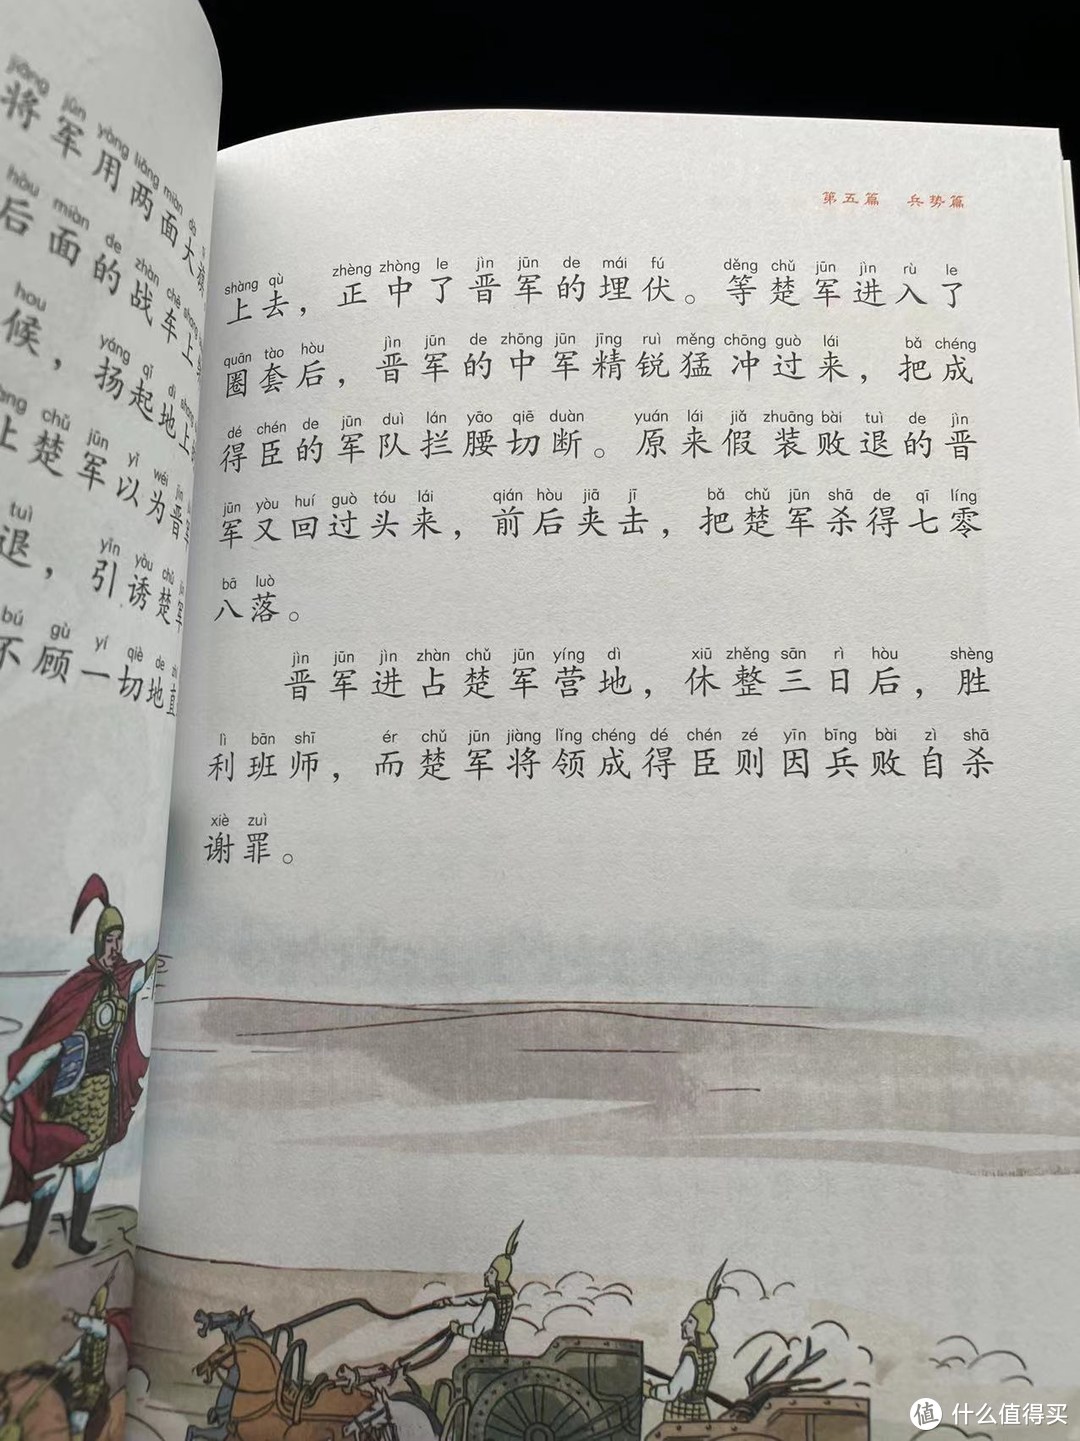 jiāng jūn yòng liǎng miàn dà
将军用两面大旗
hòu miàn de zhàn chē shàng
后面的战车上
hou
候，扬起地上
yáng qǐ dì shang
chǔ jūn yǐ wéi jìn
上楚军以为晋
tuì yǐn yòu chǔ
退，引诱楚军
bú gù yí qiè de zhí
不顾一切地直
第五篇 兵势篇
shàng qù zhèng zhòng le jìn jūn de mái fú děng chǔ jūn jìn rù le
上去，正中了晋军的埋伏。等楚军进入了
quān tào hòu jìn jūn de zhōng jūn jīng ruì měng chōng guò lái bǎ chéng
圈套后，晋军的中军精锐猛冲过来，把成
dé chén de jūn duì lán yāo qiē duàn yuán lái jiǎ zhuāng bài tuì de jìn
得臣的军队拦腰切断。原来假装败退的晋
jūn yòu huí guò tóu lái qián hòu jiā jī bǎ chǔ jūn shā de qī líng
军又回过头来，前后夹击，把楚军杀得七零
bā luò
八落。
jìn jūn jìn zhàn chǔ jūn yíng dì xiū zhěng sān rì hòu shèng
晋军进占楚军营地，休整三日后，胜
lì bān shī ér chǔ jūn jiàng lǐng chéng dé chén zé yīn bīng bài zì shā
利班师，而楚军将领成得臣则因兵败自杀
xiè zuì
谢罪。
值 什么值得买